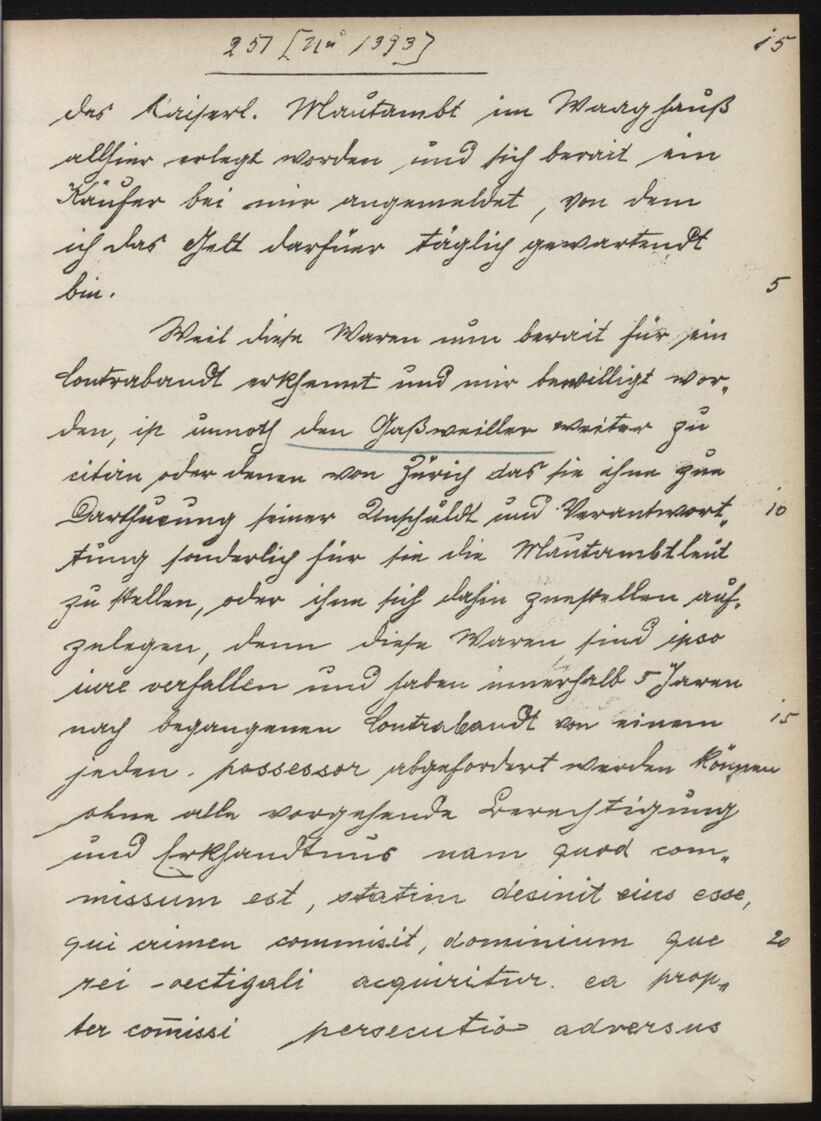 257 [Nü 1393]
15
des Kaiserl. Mautambt im Waaghauß
allhier erlegt worden und sich berait ein
Käufer bei mir angemeldet, von dem
ich das Gelt darfüer täglich gewartendt
bin.
5
Weil diese Waren nun berait für ein
Contrabandt erkhennt und mir bewilligt wor„
den, ist unnoth den Gaßweiller weiter zu
citirn oder denen von Zürich das sie ihne zue
Darthueung seiner Unschuldt und Verantwort„
10
tung sonderlich für sie die Mautambtleut
zu stellen, oder ihne sich dahin zuestellen auf„
zulegen, denn diese Waren sind ipso
iure verfallen und haben innerhalb 5 Jaren
nach begangenen Contrabandt von einem
15
jeden possessor abgefordert werden können
ohne alle vorgehende Berechtigung
und Erkhandtnus nam quod com„
missum est, statim desinit eius esse,
qui crimen commisit, dominium que
20
rei vectigali acquiritur. ea prop„
ter com̄issi persecutio adversus